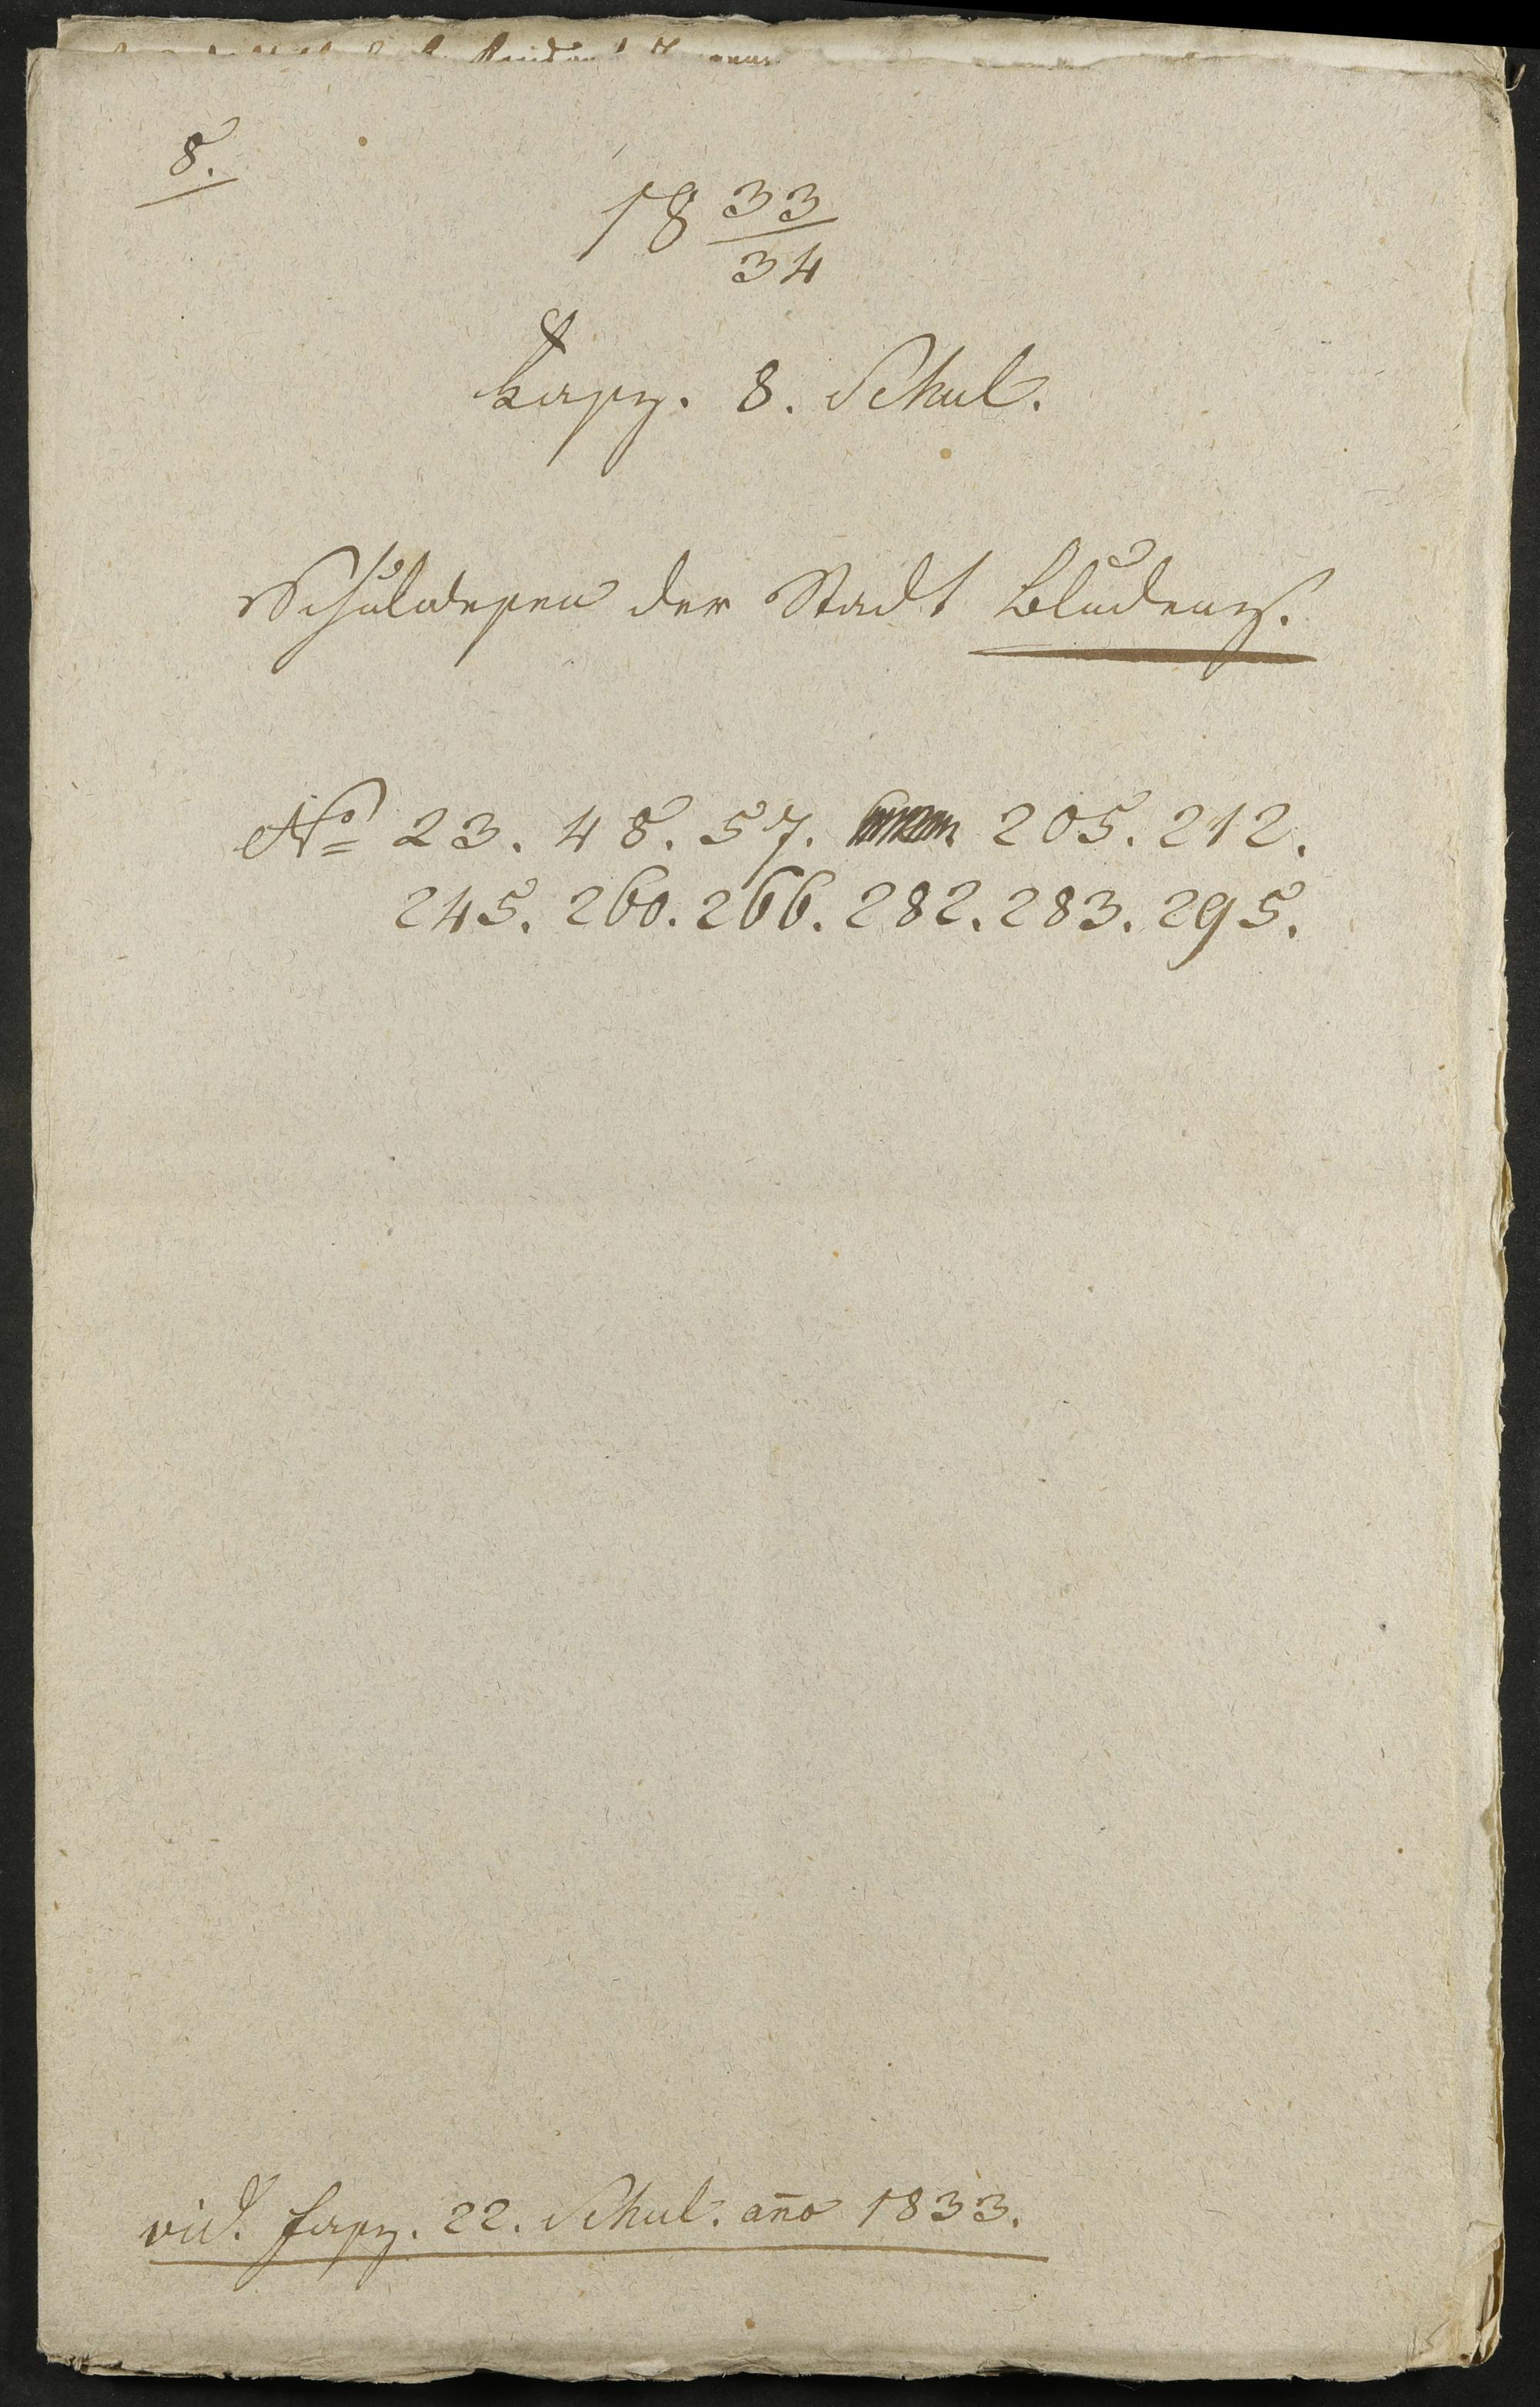 8.
18 33/34
Fasz. 8. Schul.
Schulwesen der Stadt Bludenz.
No 23. 48. 57. 205. 212.
245. 260. 266. 282. 283. 295.
vid. Fasz. 22. Schul. año 1833.